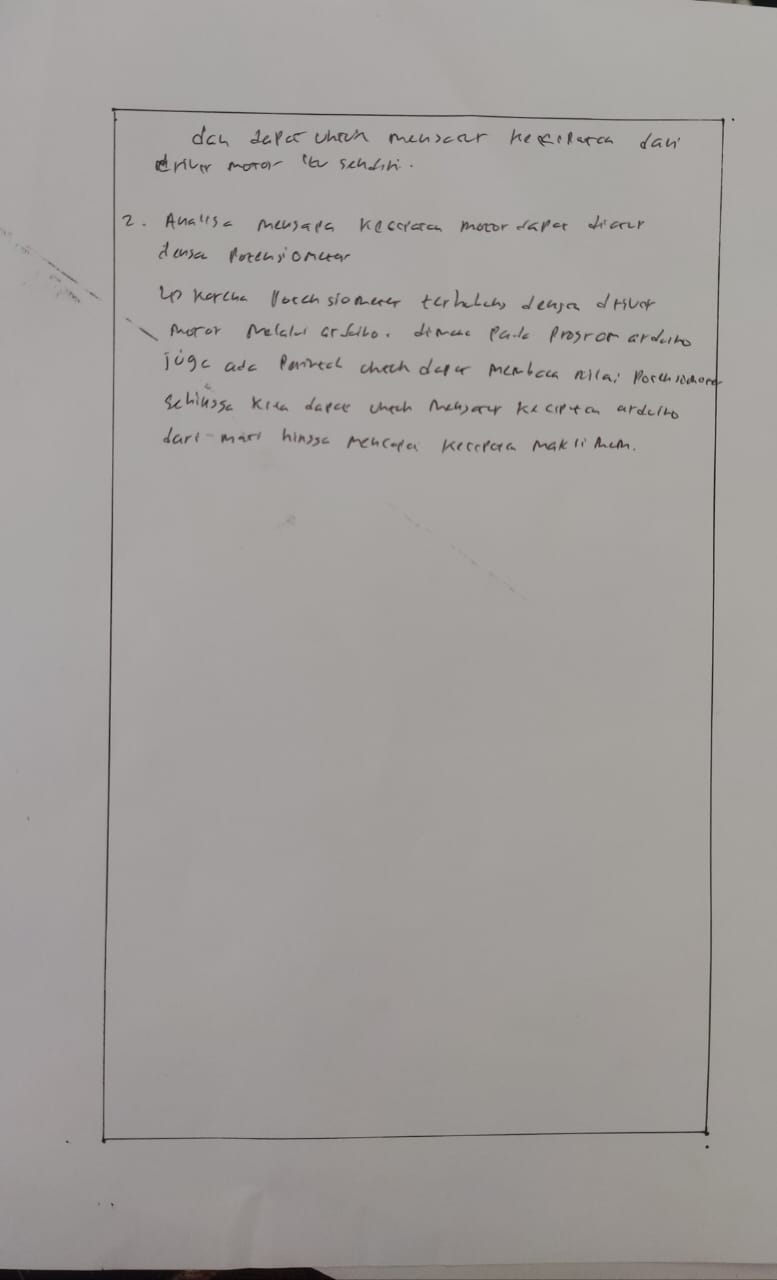 dan dapat untuk mengatur kecepatan dari
driver motor itu sendiri.
2. Analisa mengapa kecepatan motor dapat diatur
dengan Potensiometer
↳ Karena Potensiometer terhubung dengan driver
motor melalui arduino. dimana pada Program arduino
juga ada Perintah untuk dapat membaca nilai Potensiometer
sehingga kita dapat untuk mengatur kecepatan arduino
dari mati hingga mencapai kecepatan maksimum.